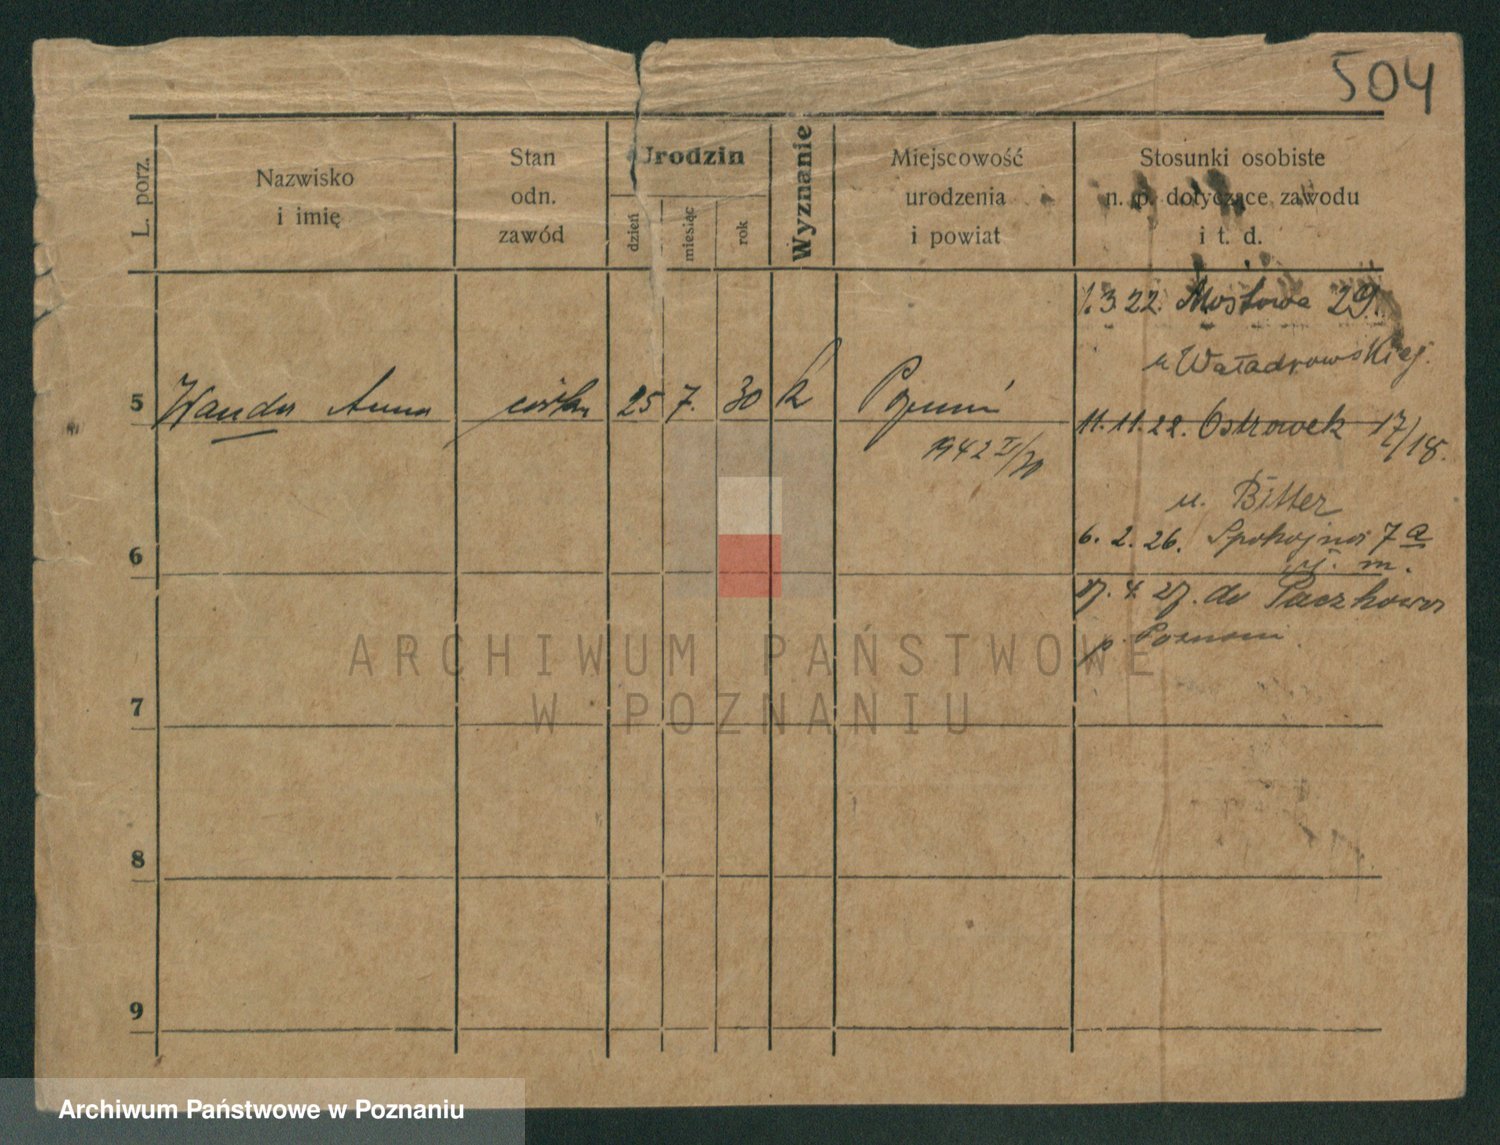 504
L. porz.
Nazwisko
i imię
Stan
odn.
zawód
Urodzin
dzień
miesiąc
rok
Wyznanie
Miejscowość
urodzenia
i powiat
Stosunki osobiste
n. p. dotyczące zawodu
i t. d.
1.3.22. Mostowa 29.
u Waładrowskiej.
5 Wanda Anna córka 25 7. 30 k Poznań
1942 II/30
11.11.22. Ostrowek 17/18.
u. Bitter
6
6. 2. 26. Spokojna 7a
u. m.
17. 4. 27. do Paczkowa
p. Poznań
ARCHIWUM PAŃSTWOWE
W POZNANIU
7
8
9
Archiwum Państwowe w Poznaniu